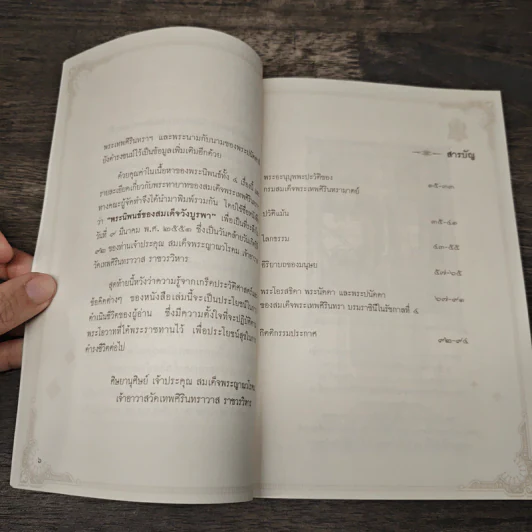 พระเทพศิรินทราฯ และพระนามกับนามของพระปนัดดา
ยังดำรงชนม์ไว้เป็นข้อมูลเพิ่มเติมอีกด้วย
ด้วยคุณค่าในเนื้อหาของพระนิพนธ์ทั้ง ๔ เรื่องนี้
รายละเอียดเกี่ยวกับพระทายาทของสมเด็จพระเทพศิรินทรา
ทางคณะผู้จัดทำจึงได้นำมาพิมพ์รวมกัน โดยใช้ชื่อ
ว่า "พระนิพนธ์ของสมเด็จวังบูรพา" เพื่อเป็นที่ระลึก
วันที่ ๙ มีนาคม พ.ศ. ๒๕๕๓ ซึ่งเป็นวันคล้ายวันเกิด
๙๒ ของท่านเจ้าประคุณ สมเด็จพระญาณวโรดม เจ้าอาวาส
วัดเทพศิรินทราวาส ราชวรวิหาร
สุดท้ายนี้หวังว่าความรู้จากเกร็ดประวัติศาสตร์และ
ข้อคิดต่างๆ ของหนังสือเล่มนี้จะเป็นประโยชน์ในการ
ดำเนินชีวิตของผู้อ่าน ซึ่งมีความตั้งใจที่จะปฏิบัติตาม
พระโอวาทที่ได้พระราชทานไว้ เพื่อประโยชน์สุขในการ
ดำรงชีวิตต่อไป
ศิษยานุศิษย์ เจ้าประคุณ สมเด็จพระญาณวโรดม
เจ้าอาวาสวัดเทพศิรินทราวาส ราชวรวิหาร
๖
สารบัญ
พระอนุบุพพะประวัติของ
กรมสมเด็จพระเทพศิรินทรามาตย์
ปวัตินมัน ๓๕-๔๑
โลกธรรม ๔๓-๕๕
อิริยาบถของมนุษย ๕๗-๖๕
พระโอรสธิดา พระนัดดา และพระปนัดดา
ของสมเด็จพระเทพศิรินทรา บรมราชินีในรัชกาลที่ ๔ ๖๗-๙๑
กิตติกรรมประกาศ ๙๒-๙๔